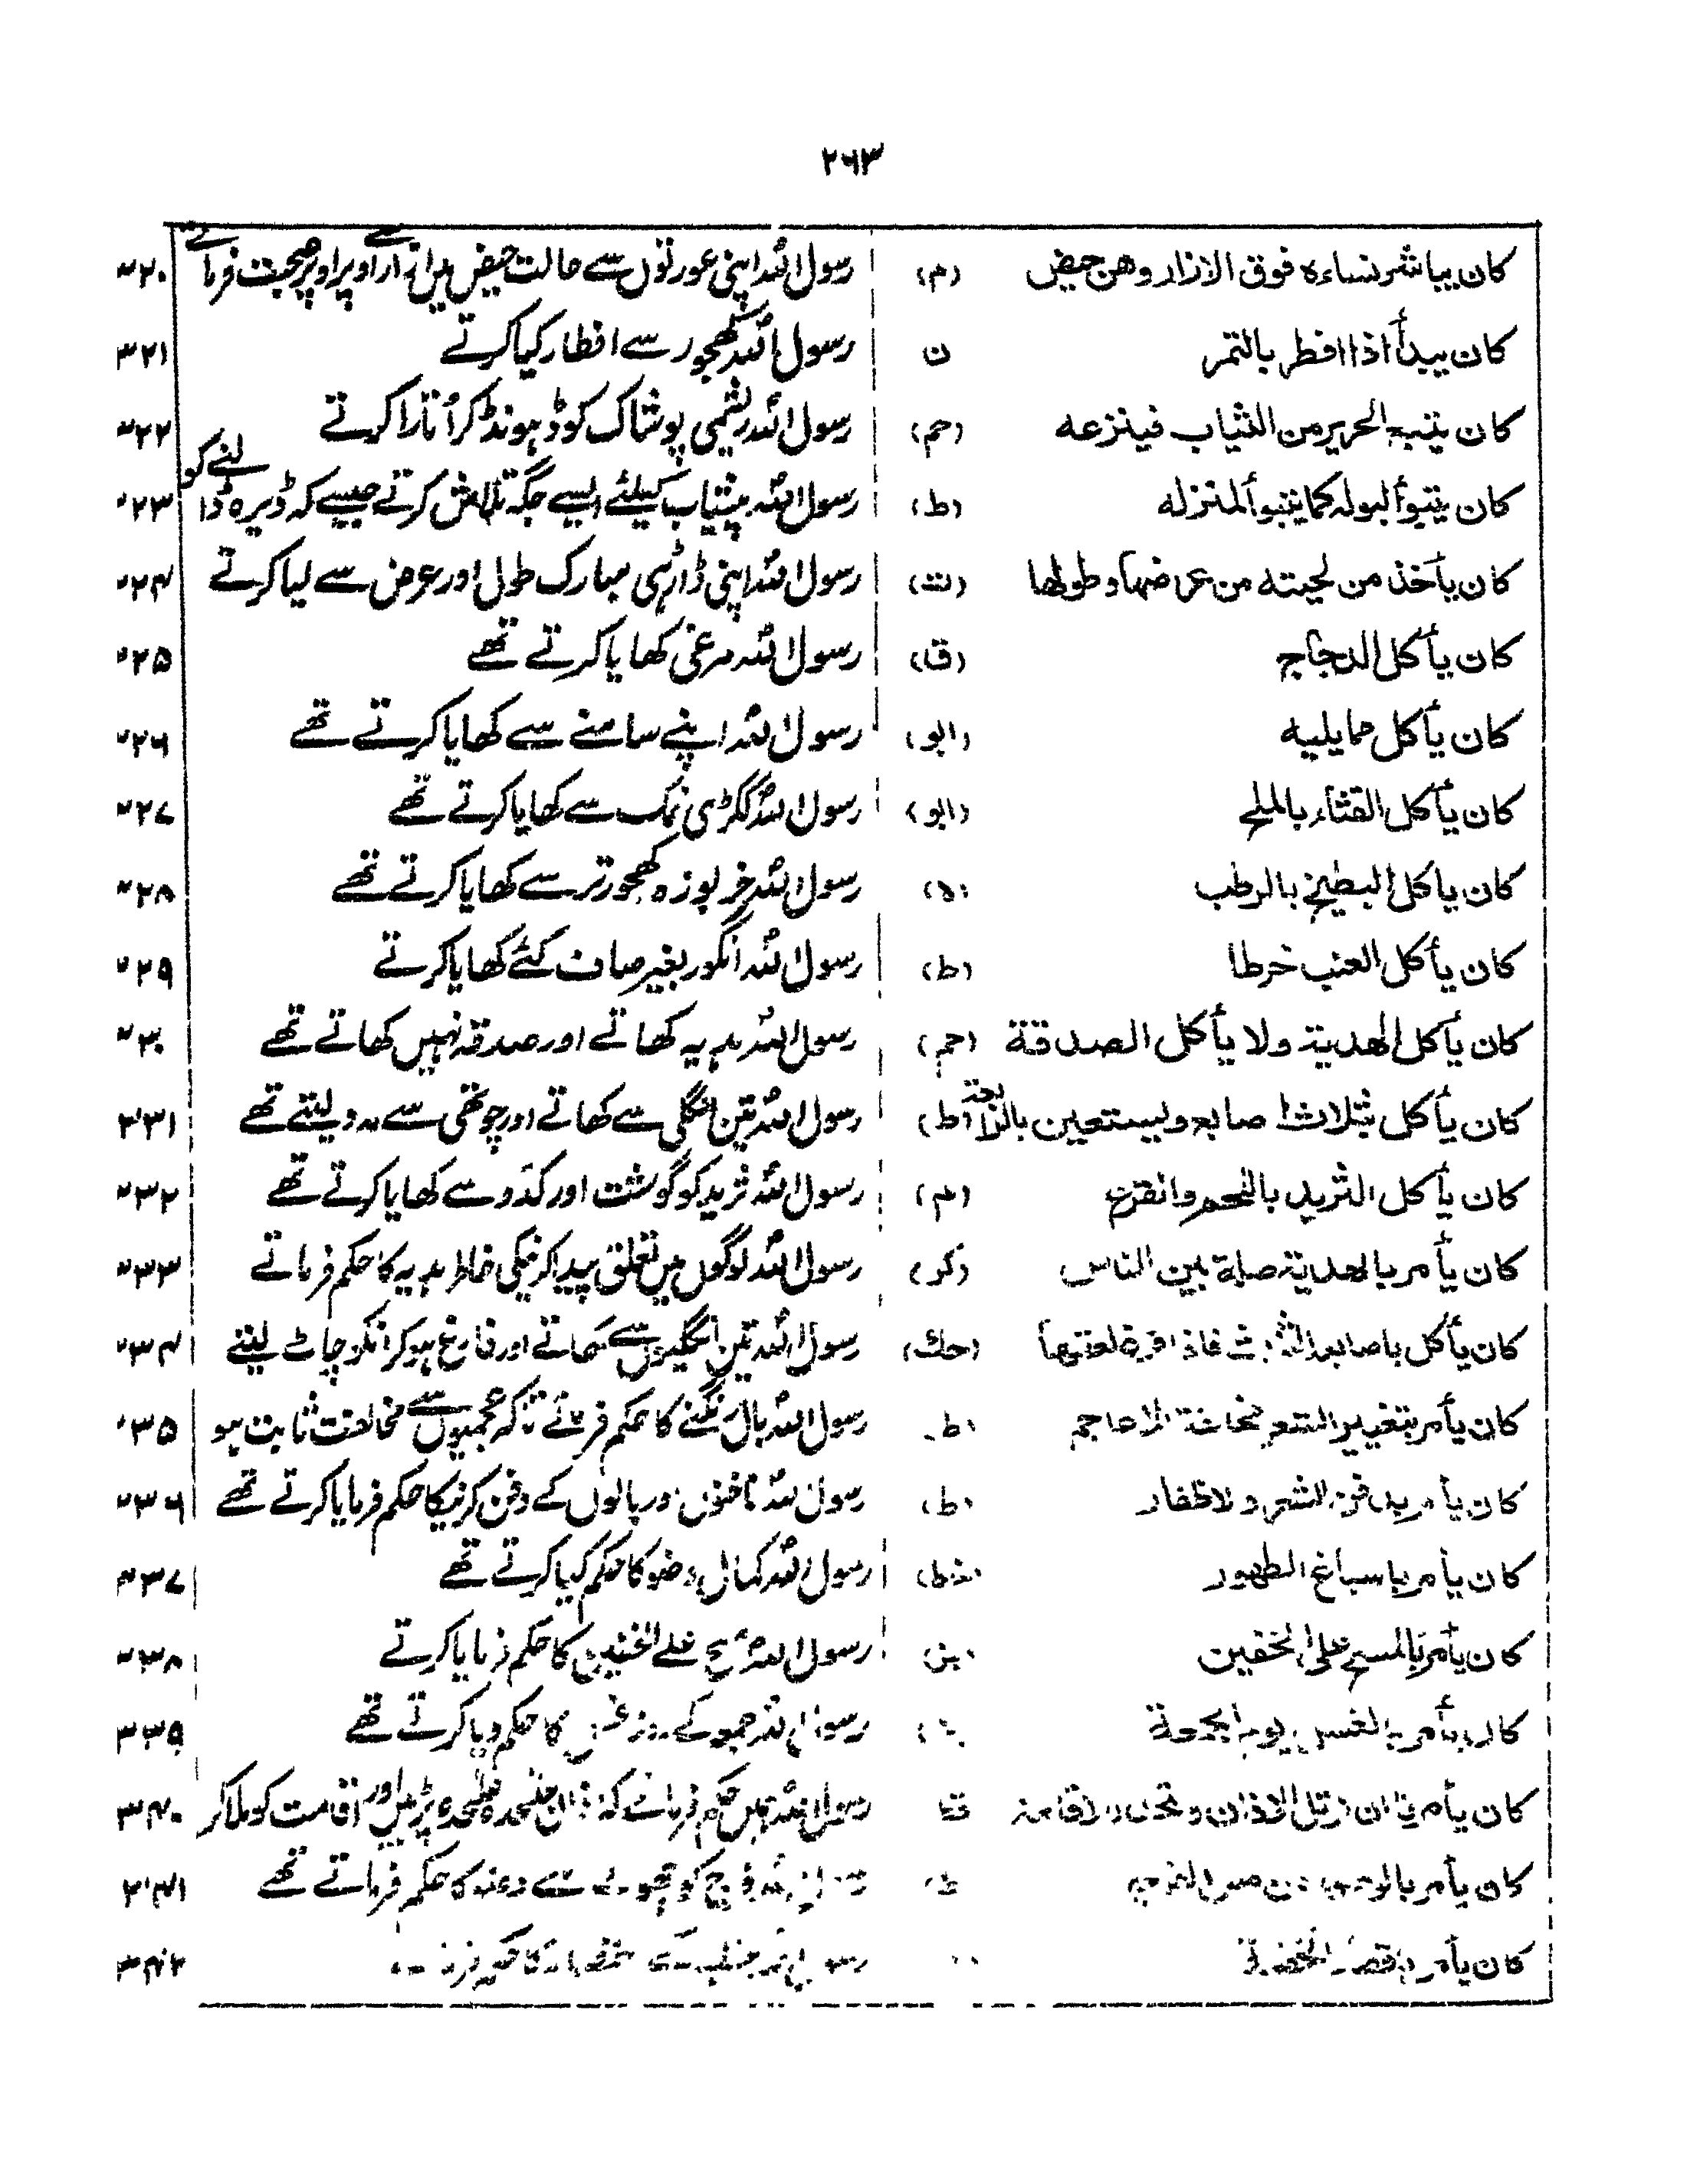 ۲۶۳
کان یباشر نساءہ فوق الازار وھن حیض (م) رسول اللہ اپنی عورتوں سے حالت حیض میں ازار اوپر اوپر صحبت فرماتے ۳۲۰
کان یبدأ اذا افطر بالتمر ن رسول اللہ کھجور سے افطار کیا کرتے ۳۲۱
کان یتبع الحریر من الثیاب فینزعہ (حم) رسول اللہ ریشمی پوشاک کو ڈہونڈ کر اُتارا کرتے ۳۲۲
کان یتبوأ لبولہ کما یتبوأ لمنزلہ (ط) رسول اللہ پیشاب کیلئے ایسے جگہ تلاش کرتے جیسے کہ ڈیرہ ڈالنے کو ۳۲۳
کان یأخذ من لحیتہ من عرضہا وطولھا (ت) رسول اللہ اپنی ڈاڑہی مبارک طول اور عرض سے لیا کرتے ۳۲۴
کان یأکل الدجاج (قا) رسول اللہ مرغی کھایا کرتے تھے ۳۲۵
کان یأکل مما یلیہ (ابو) رسول اللہ اپنے سامنے سے کھایا کرتے تھے ۳۲۶
کان یأکل القثاء بالملح (ابو) رسول اللہ ککڑی نمک سے کھایا کرتے تھے ۳۲۷
کان یاکل البطیخ بالرطب (ہ) رسول اللہ خرپوزہ کھجور تر سے کھایا کرتے تھے ۳۲۸
کان یأکل العنب خرطا (ط) رسول اللہ انگور بغیر صاف کئے کھایا کرتے ۳۲۹
کان یأکل الھدیۃ ولا یأکل الصدقۃ (حم) رسول اللہ ہدیہ کھاتے اور صدقہ نہیں کھاتے تھے ۳۳۰
کان یأکل بثلاث اصابع ویستعین بالرابعۃ (ط) رسول اللہ تین انگلی سے کھاتے اور چوتھی سے مدد لیتے تھے ۳۳۱
کان یأکل الثرید باللحم والقرع (م) رسول اللہ ثرید کو گوشت اور کدّو سے کھایا کرتے تھے ۳۳۲
کان یأمر بالھدیۃ صلۃ بین الناس (کر) رسول اللہ لوگوں میں تعلق پیدا کرنیکی خاطر ہدیہ کا حکم فرماتے ۳۳۳
کان یأکل باصابعہ الثلاث فاذا فرغ لعقہا (حک) رسول اللہ تین انگلیوں سے کھاتے اور فارغ ہوکر انکو چاٹ لیتے ۳۳۴
کان یأمر بتغییر الشعر مخالفۃ الاعاجم (ط) رسول اللہ بال رنگنے کا حکم فرماتے تاکہ عجمیوں سے مخالفت ثابت ہو ۳۳۵
کان یأمر بدفن الشعر والاظفار (ط) رسول اللہ ناخنوں اور بالوں کے دفن کرنیکا حکم فرمایا کرتے تھے ۳۳۶
کان یأمر باسباغ الطھور (خط) رسول اللہ کمال وضو کا حکم کیا کرتے تھے ۳۳۷
کان یأمر بالمسح علی الخفین رسول اللہ مسح علے الخفین کا حکم فرمایا کرتے ۳۳۸
کان یأمر بالغسل یوم الجمعۃ رسول اللہ جمعہ کے روز غسل کا حکم دیا کرتے تھے ۳۳۹
کان یأمر ان نرتل الاذان و رسول اللہ ہمیں حکم فرماتے کہ اذان علیحدہ علیحدہ پڑہیں اور اقامت کو ملاکر ۳۴۰
کان یأمر بالوضوء من مس الفرج رسول اللہ فرج کو چھونے سے وضو کا حکم فرماتے تھے ۳۴۱
کان یأمر رسول اللہ ۳۴۲